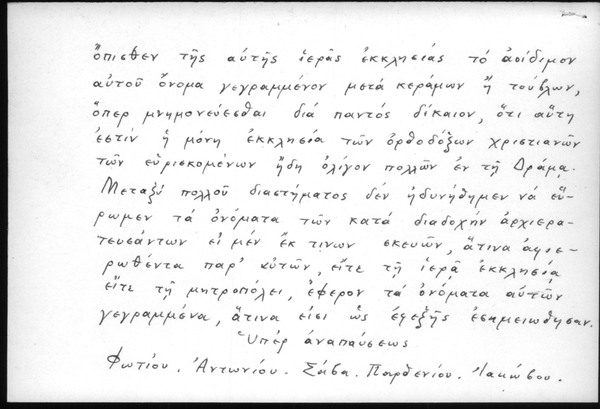 ὄπισθεν τῆς αὐτῆς ἱερᾶς ἐκκλησιάς τό ἀοίδιμον
αὐτοῦ ὄνομα γεγραμμένον μετά κεράμων ἤ τούβλων,
ὅπερ μνημονεύεσθαι διά παντός δίκαιον, ὅτι αὕτη
ἐστίν ἡ μόνη ἐκκλησία τῶν ὀρθοδόξων χριστιανῶν
τῶν εὑρισκομένων ἤδη ὀλίγον πολλῶν ἐν τῇ Δράμᾳ.
Μεταξύ πολλοῦ διαστήματος δέν ἠδυνήθημεν νά εὕ-
ρωμεν τά ὀνόματα τῶν κατά διαδοχήν ἀρχιερα-
τευσάντων εἰ μέν ἔκ τινων σκευῶν, ἅτινα ἀφιε-
ρωθέντα παρ' αὐτῶν, εἴτε τῇ ἱερᾷ ἐκκλησίᾳ
εἴτε τῇ μητροπόλει, ἔφερον τά ὀνόματα αὐτῶν
γεγραμμένα, ἅτινα εἰσι ὡς ἐφεξῆς ἐσημειώθησαν.
Ὑπέρ ἀναπαύσεως
Φωτίου. Ἀντωνίου. Σάβα. Παρθενίου. Ἰακώβου.